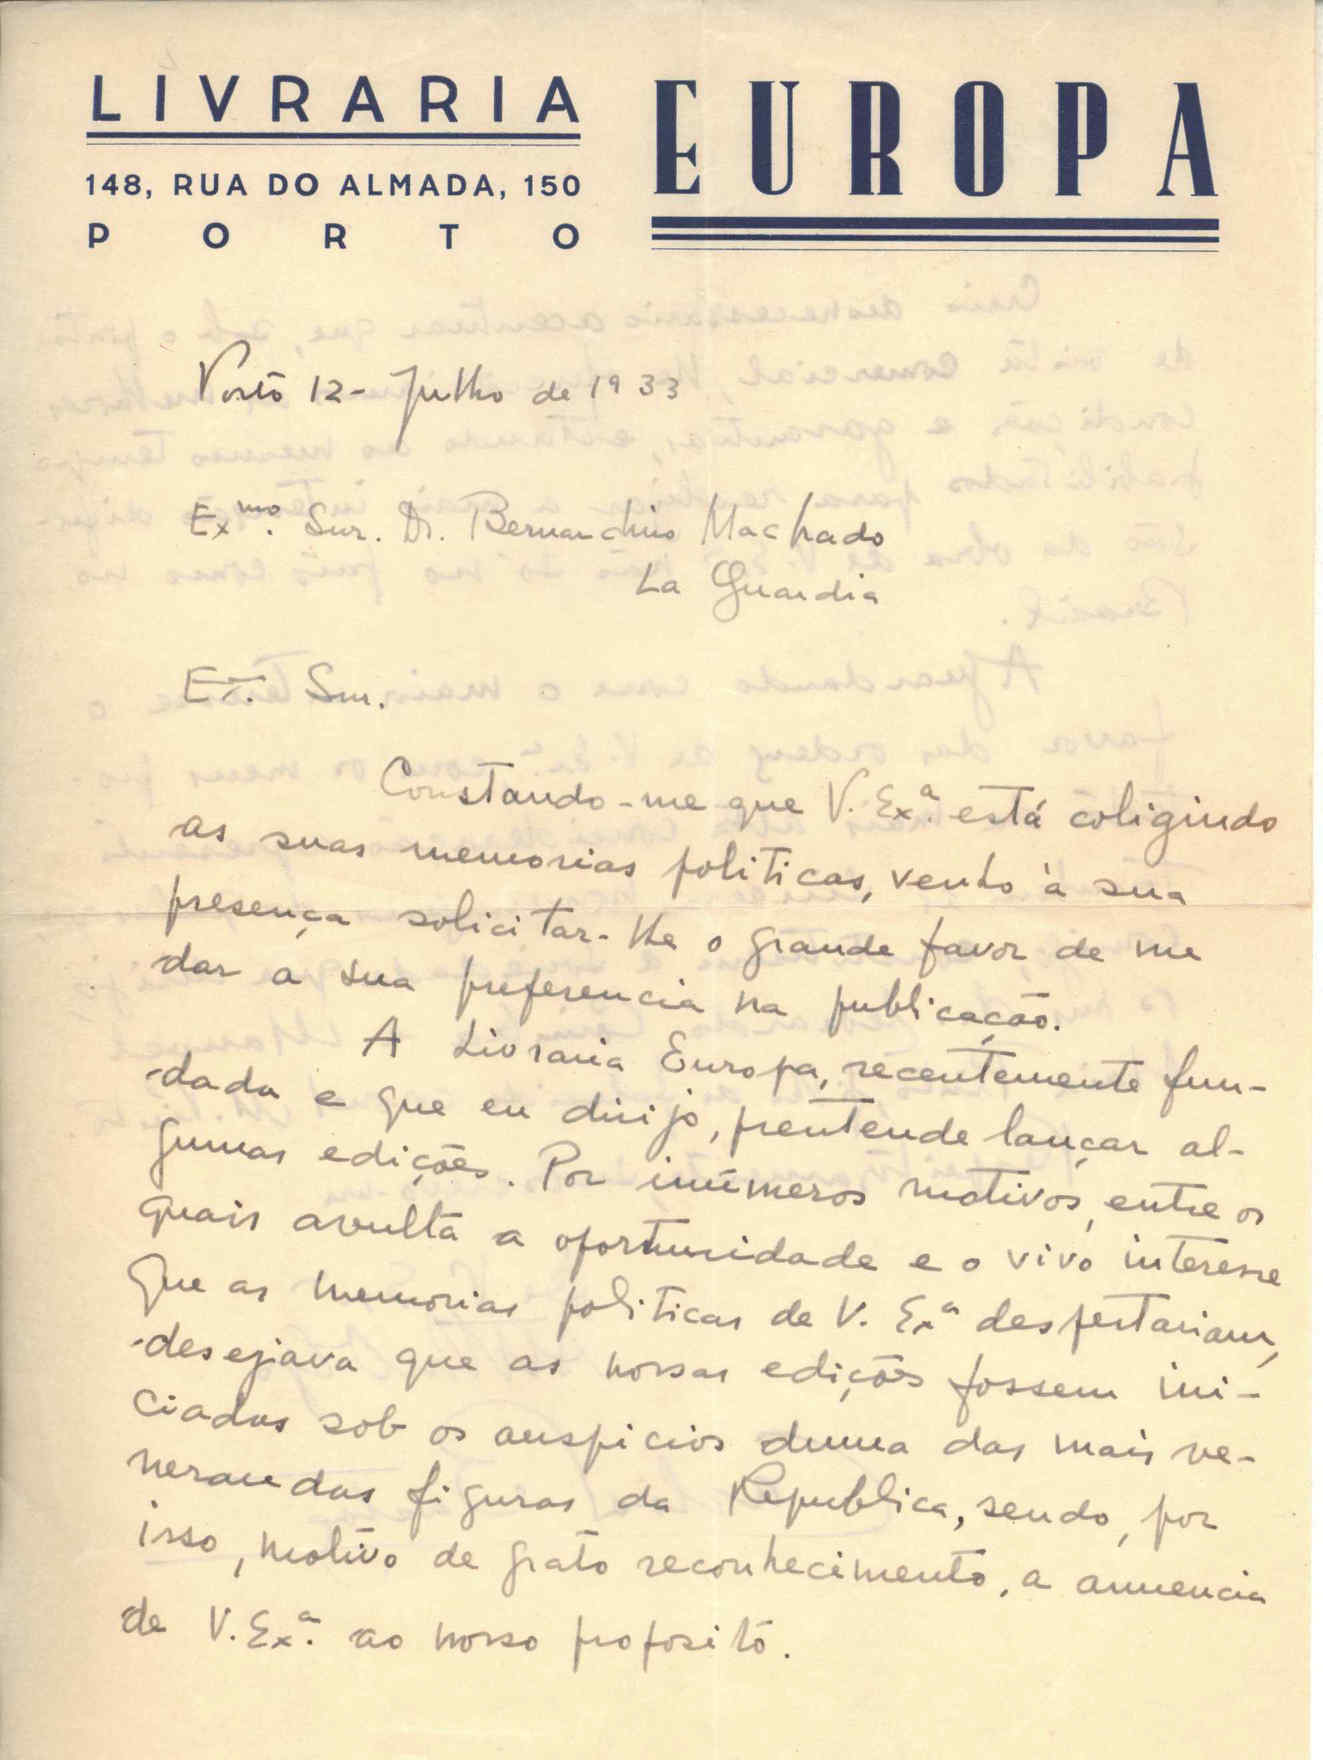 LIVRARIA EUROPA
148, RUA DO ALMADA, 150
PORTO
Porto 12 - Julho de 1933
Exmo. Snr. Dr. Bernardino Machado
La Guardia
Ex. Snr.
Constando-me que V. Exa. está coligindo
as suas memorias politicas, venho à sua
presença solicitar-lhe o grande favor de me
dar a sua preferencia na publicação.
A Livraria Europa, recentemente fun-
dada e que eu dirijo, prentende lançar al-
gumas edições. Por inúmeros motivos, entre os
quais avulta a oportunidade e o vivo interesse
que as memorias politicas de V. Exa despertariam,
desejava que as nossas edições fossem ini-
ciadas sob os auspicios duma das mais ve-
nerandas figuras da Republica, sendo, por
isso, motivo de grato reconhecimento, a anuencia
de V. Exa. ao nosso proposito.